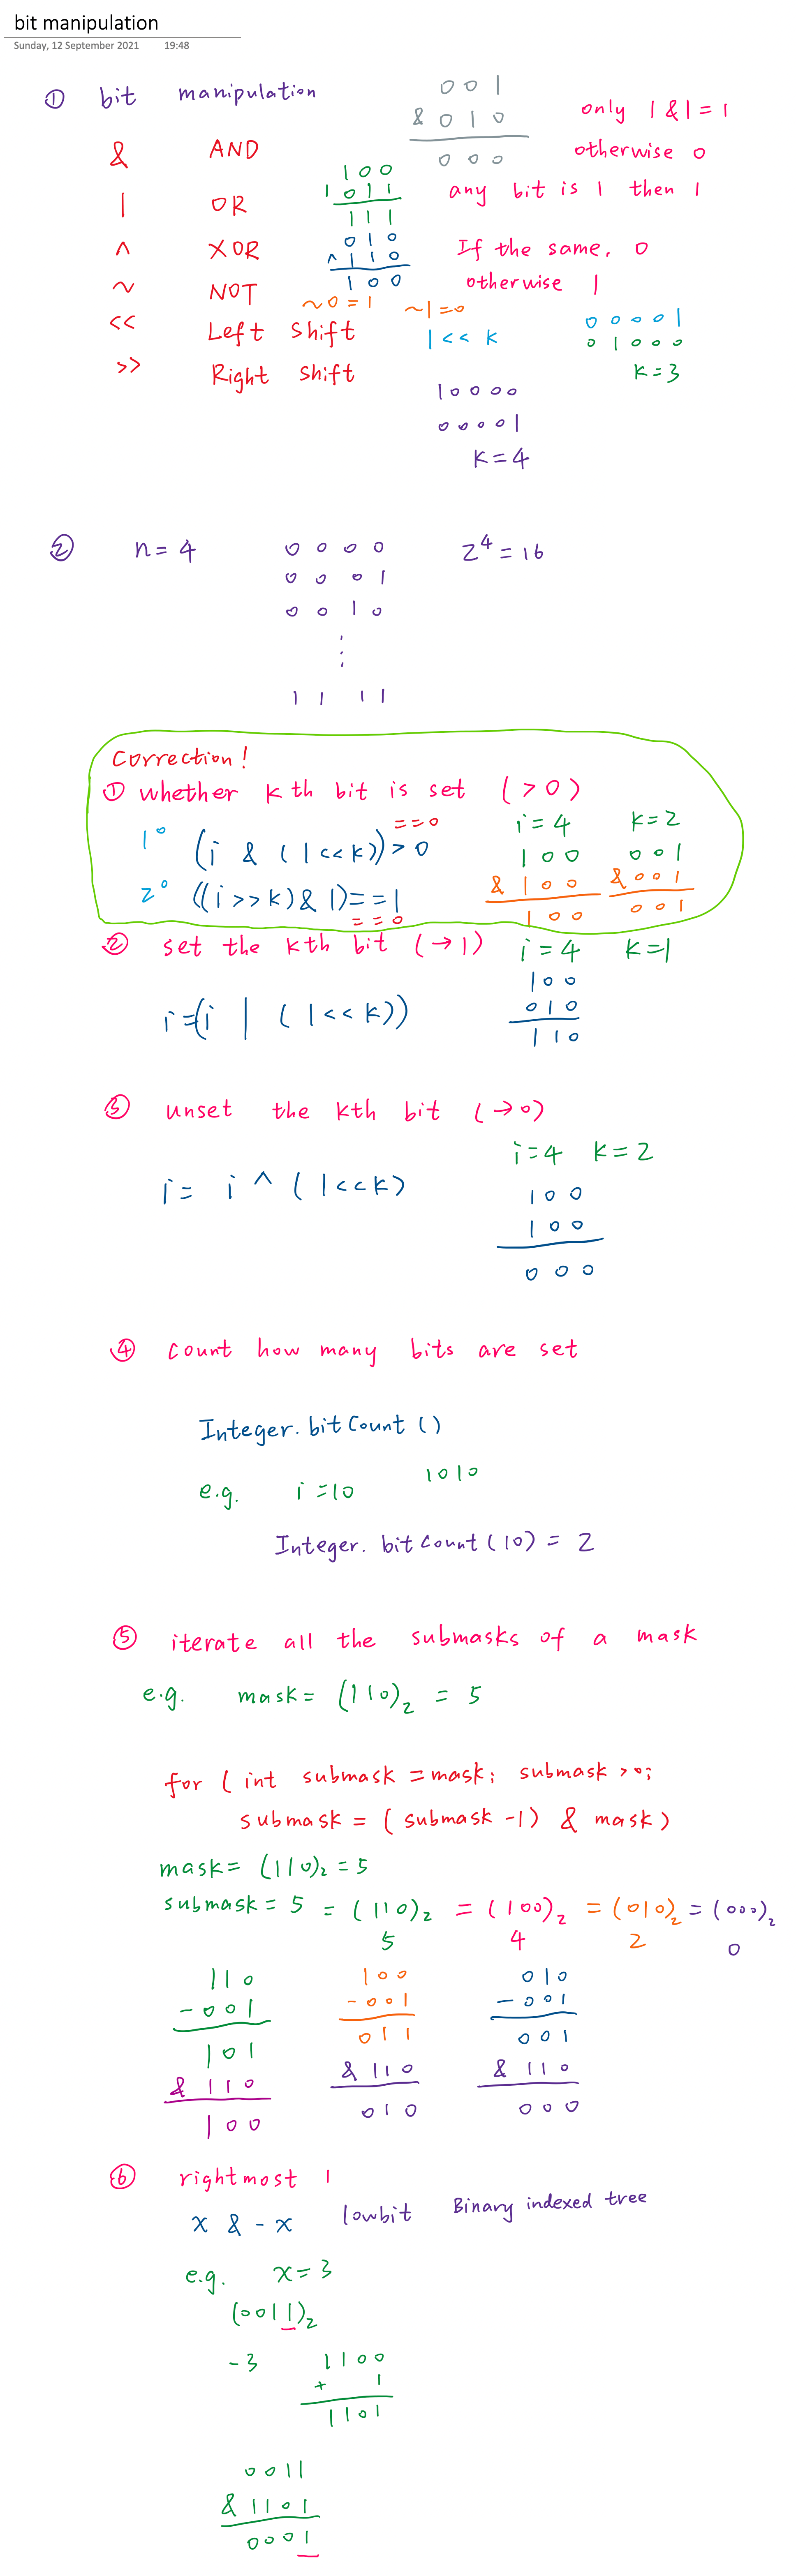 bit manipulation
Sunday, 12 September 2021 19:48
① bit manipulation
0 0 1
& 0 1 0
0 0 0
only 1 & 1 = 1
otherwise 0
& AND
1 0 0
| 0 1 1
1 1 1
any bit is 1 then 1
| OR
0 1 0
^ 1 1 0
1 0 0
If the same, 0
otherwise 1
^ XOR
~ NOT
~0 = 1 ~1 = 0
<< Left Shift
1 << k
0 0 0 0 1
0 1 0 0 0
k = 3
>> Right Shift
1 0 0 0 0
0 0 0 0 1
k = 4
② n = 4
0 0 0 0
0 0 0 1
0 0 1 0
⋮
1 1 1 1
2^4 = 16
Correction!
① whether kth bit is set ( > 0 )
1° (i & (1<<k)) > 0
== 0
2° ((i >> k) & 1) == 1
== 0
i = 4 k = 2
1 0 0 0 0 1
& 1 0 0 & 0 0 1
1 0 0 0 0 1
② set the kth bit (→1) i = 4 k = 1
i = (i | (1<<k))
1 0 0
0 1 0
1 1 0
③ unset the kth bit (→0)
i = 4 k = 2
i = i ^ (1<<k)
1 0 0
1 0 0
0 0 0
④ count how many bits are set
Integer.bitCount()
e.g. i = 10 1010
Integer.bitCount(10) = 2
⑤ iterate all the submasks of a mask
e.g. mask = (110)₂ = 5
for (int submask = mask; submask > 0;
submask = (submask - 1) & mask)
mask = (110)₂ = 5
submask = 5 = (110)₂ = (100)₂ = (010)₂ = (000)₂
5 4 2 0
1 1 0 1 0 0 0 1 0
- 0 0 1 - 0 0 1 - 0 0 1
1 0 1 0 1 1 0 0 1
& 1 1 0 & 1 1 0 & 1 1 0
1 0 0 0 1 0 0 0 0
⑥ rightmost 1
x & -x lowbit Binary indexed tree
e.g. x = 3
(0011)₂
-3 1100
+ 1
1101
0011
& 1101
0001